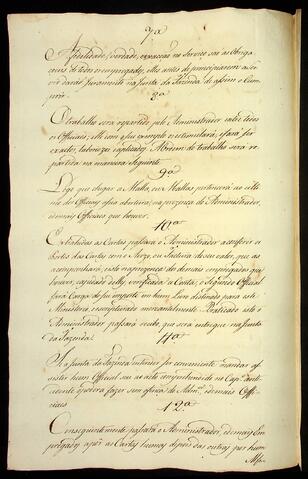 7ª
A fidelidade, verdade, e exacção no serviço são as obriga
coens de todo o empregado; elles antes de principiarem a ser
vir darão Juramento na Junta da Fazenda de assim o Cum
prir.
8ª
O trabalho será repartido pelo Administrador entre todos
os Officiaes; elle com o seu exemplo os estimulará, e fará ser
exactos, laboriozos A ordem do trabalho será re
partida na maneira seguinte
9ª
Logo que chegar a Malla, ou as Mallas pertencerá ao ulti
mo dos Officiaes a sua abertura, na prezença do Administrador,
e demais Officiaes que houver.
10ª
Extrahidas as Cartas passará o Administrador a conferir os
Portes das Cartas com o Avizo, ou factura do seu valor, que as
acompanhará, isto na prezença dos demais empregados que
houver, e depois de verificada a Conta, o Segundo Official
fará Carga do seu importe em hum Livro destinado para este
Ministerio, e escripturado mercantilmente. Praticado isto o
Administrador passará recibo, que será entregue na Junta
da Fazenda.
11ª
Se a Junta da Fazenda entender ser conveniente mandar as
sistir hum Official seu ao acto no Cap.º ante
cedente o poderá fazer sem offensa do Adm.or, e demais Offi
ciaes
12ª
Consequentemente passará o Administrador, e demais Em
pregados a pôr as Cartas humas depois das outras por hum
Alfa-